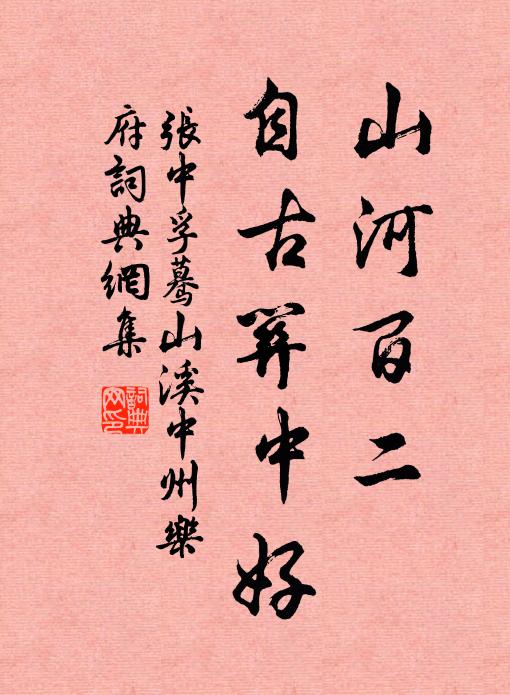 山河百二
自古関中好
張中孚驀山溪中州樂
府詞典網集
詞典
网印